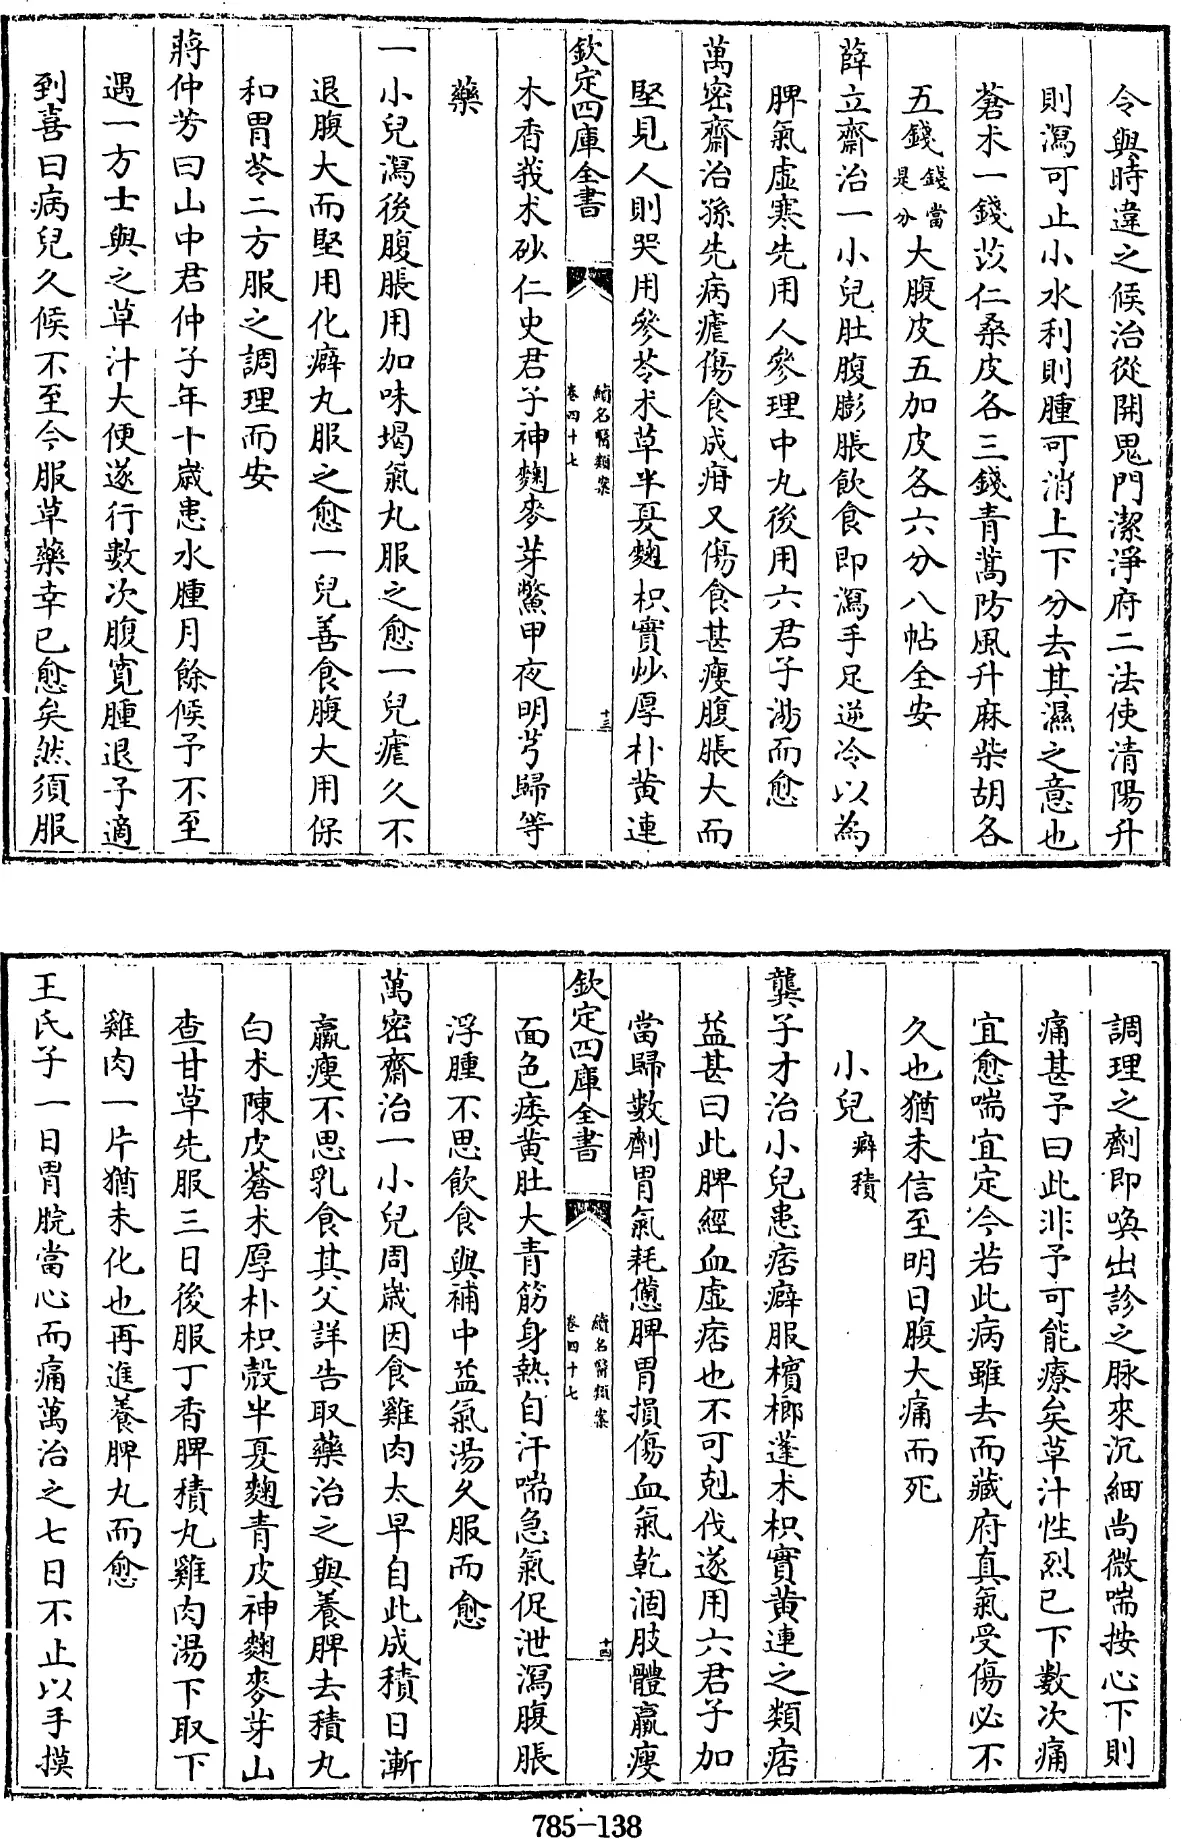 令與時違之候治從開鬼門潔淨府二法使清陽升
則瀉可止小水利則腫可消上下分去其濕之意也
蒼术一錢苡仁桑皮各三錢青蒿防風升麻柴胡各
五錢錢當是分大腹皮五加皮各六分八帖全安
薛立齋治一小兒肚腹膨脹飲食即瀉手足逆冷以為
脾氣虛寒先用人參理中丸後用六君子湯而愈
萬密齋治孫先病瘧傷食成疳又傷食甚瘦腹脹大而
堅見人則哭用參苓术草半夏麯枳實炒厚朴黄連
欽定四庫全書 續名醫類案 卷四十七 十三
木香莪术砂仁史君子神麯麥芽鱉甲夜明芎歸等
藥
一小兒瀉後腹脹用加味塌氣丸服之愈一兒瘧久不
退腹大而堅用化癖丸服之愈一兒善食腹大用保
和胃苓二方服之調理而安
蔣仲芳曰山中君仲子年十歲患水腫月餘候予不至
遇一方士與之草汁大便遂行數次腹寬腫退予適
到喜曰病兒久候不至今服草藥幸已愈矣然須服
調理之劑即喚出診之脉來沉細尚微喘按心下則
痛甚予曰此非予可能療矣草汁性烈已下數次痛
宜愈喘宜定今若此病雖去而藏府真氣受傷必不
久也猶未信至明日腹大痛而死
小兒癖積
龔子才治小兒患痞癖服檳榔蓬术枳實黄連之類痞
益甚曰此脾經血虛痞也不可剋伐遂用六君子加
當歸數劑胃氣耗憊脾胃損傷血氣乾涸肢體羸瘦
欽定四庫全書 續名醫類案 卷四十七 十四
面色痿黄肚大青筋身熱自汗喘急氣促泄瀉腹脹
浮腫不思飲食與補中益氣湯久服而愈
萬密齋治一小兒周歲因食雞肉太早自此成積日漸
羸瘦不思乳食其父詳告取藥治之與養脾去積丸
白术陳皮蒼术厚朴枳殼半夏麯青皮神麯麥芽山
查甘草先服三日後服丁香脾積丸雞肉湯下取下
雞肉一片猶未化也再進養脾丸而愈
王氏子一日胃脘當心而痛萬治之七日不止以手摸
785-138